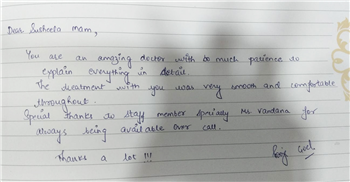 Dear Susheela Mam,
You are an amazing doctor with so much patience to
explain everything in detail.
The treatment with you was very smooth and comfortable
throughout.
Special thanks to staff member specially Ms Vandana for
always being available over call.
Thanks a lot !!!